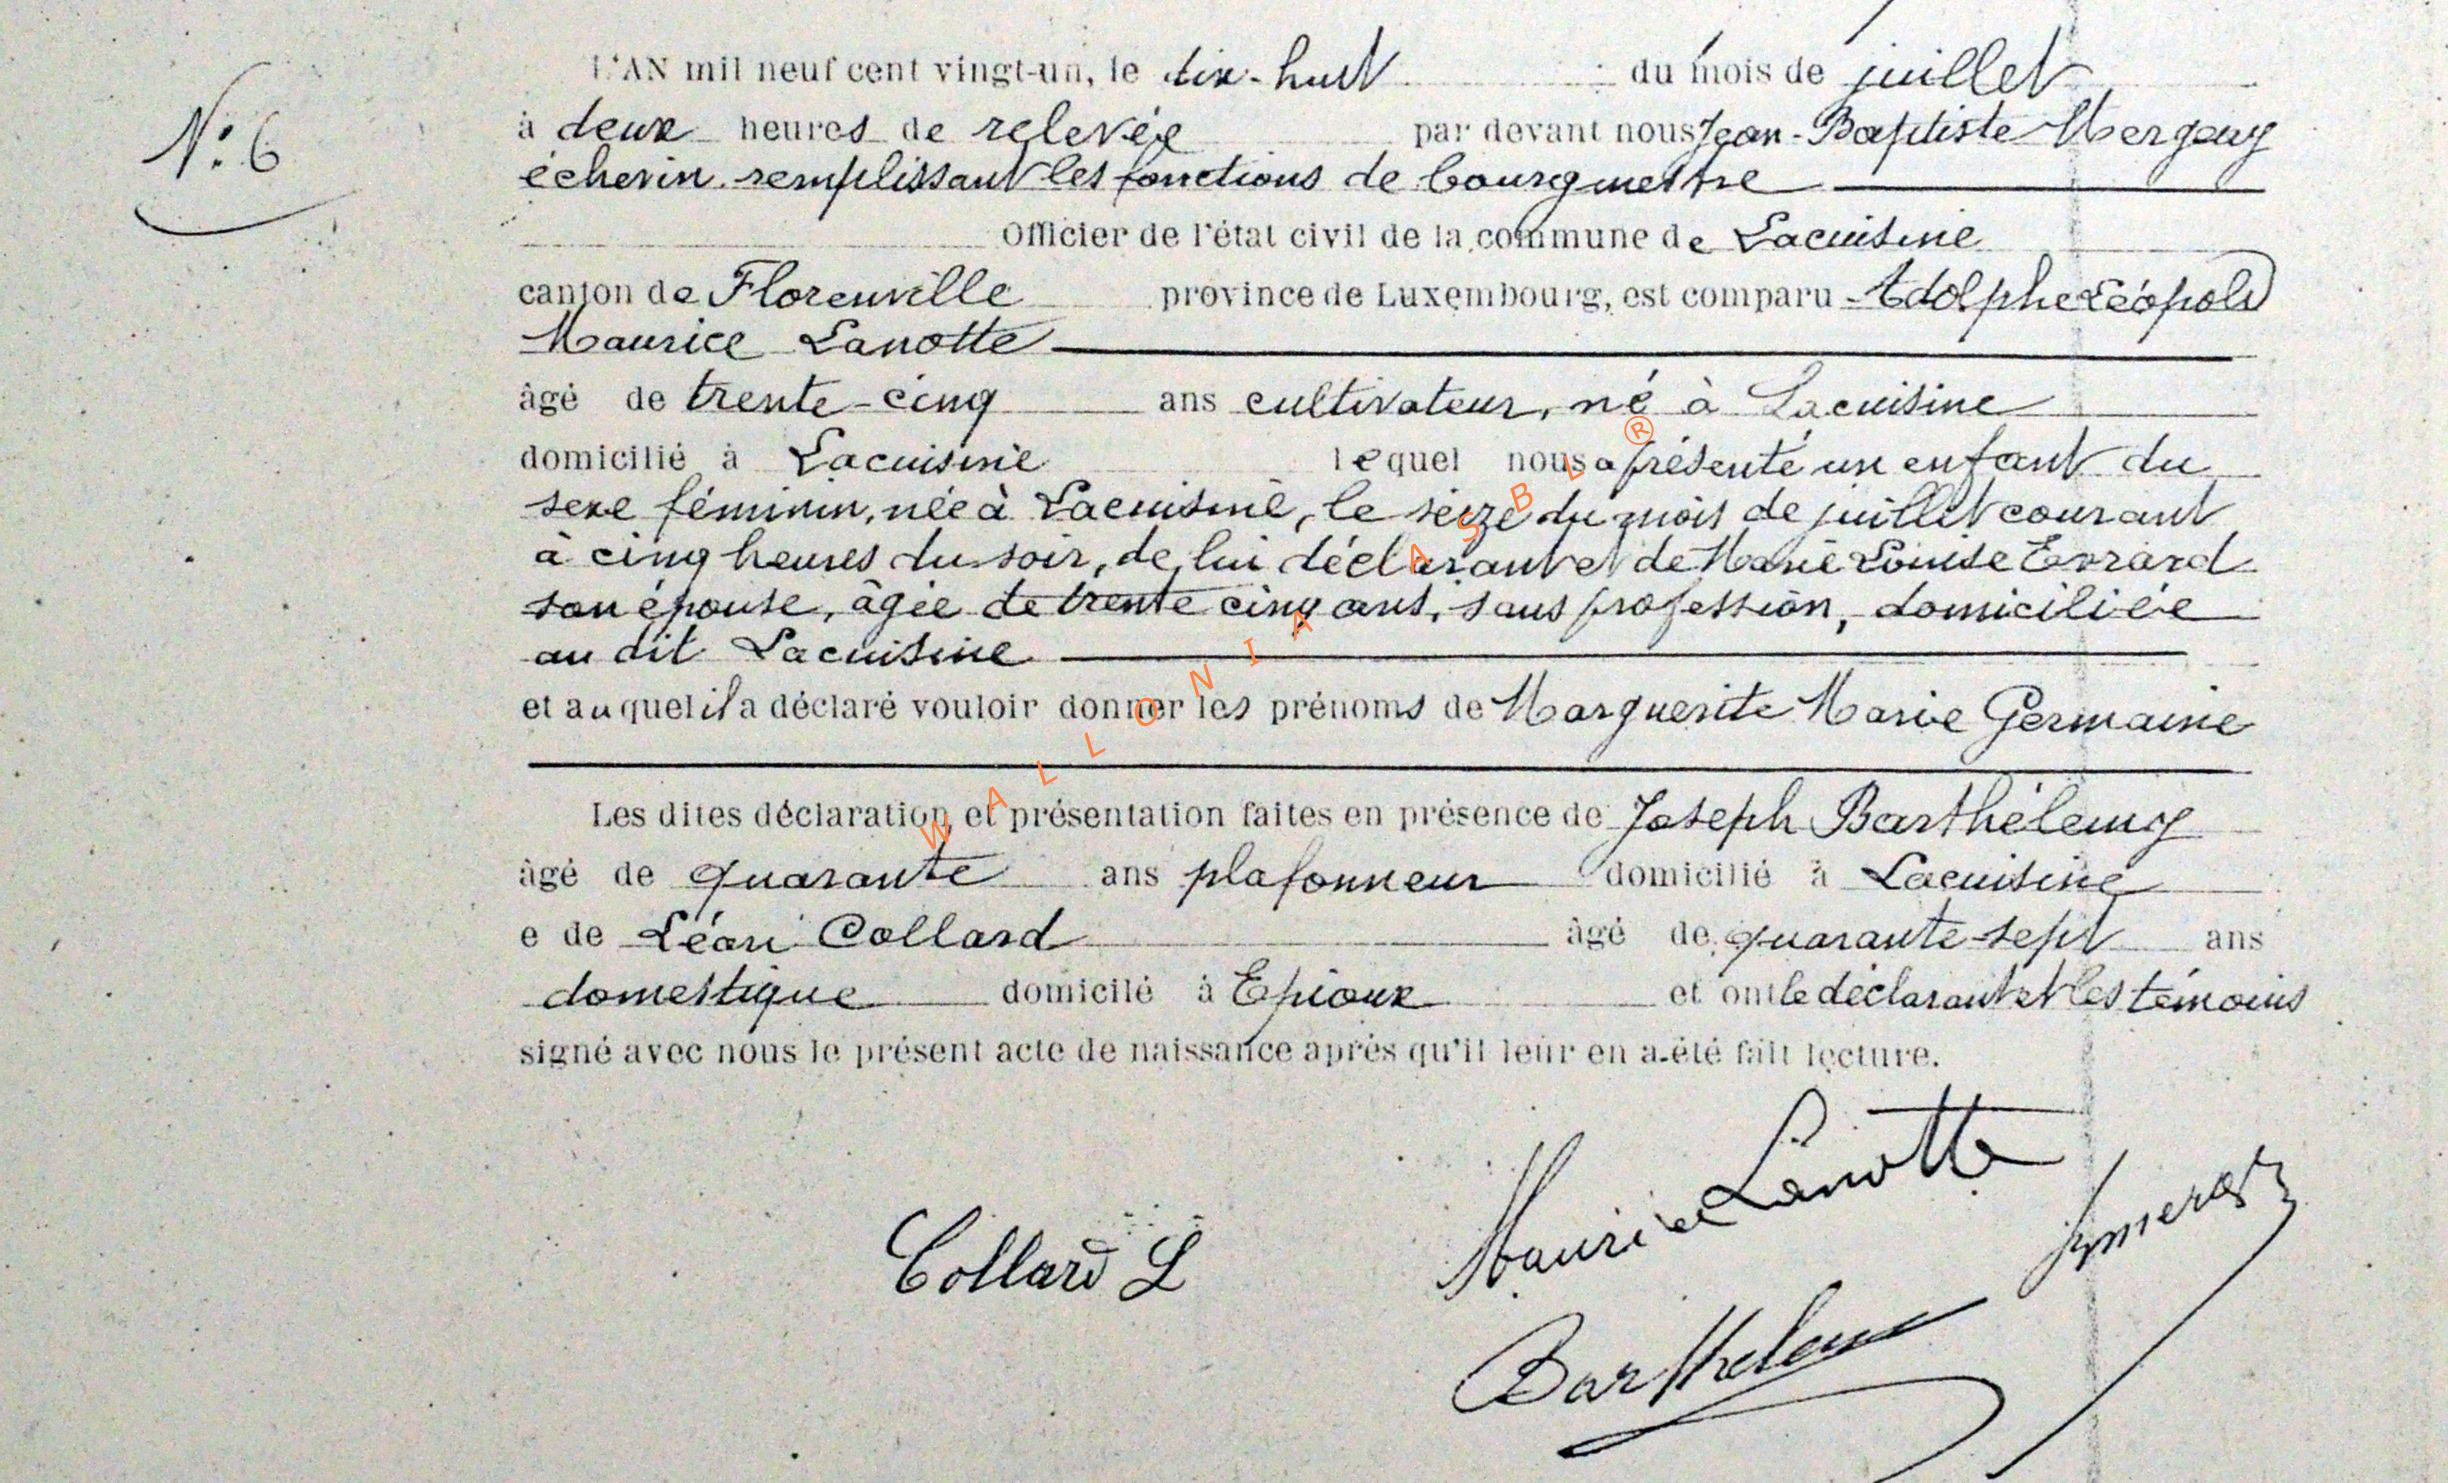 L'AN mil neuf cent vingt-un, le dix-huit du mois de juillet
N° 6
à deux heures de relevée par devant nous Jean-Baptiste Mergeay
échevin remplissant les fonctions de bourgmestre
Officier de l'état civil de la commune de Lacuisine
canton de Florenville province de Luxembourg, est comparu Adolphe Léopold
Maurice Lanotte
âgé de trente-cinq ans cultivateur, né à Lacuisine
domicilié à Lacuisine lequel nous a présenté un enfant du
sexe féminin, née à Lacuisine, le seize du mois de juillet courant
à cinq heures du soir, de lui déclarant et de Marie Louise Evrard
son épouse, âgée de trente cinq ans, sans profession, domiciliée
au dit Lacuisine
et auquel il a déclaré vouloir donner les prénoms de Marguerite Marie Germaine
Les dites déclaration et présentation faites en présence de Joseph Barthélemy
âgé de quarante ans plafonneur domicilié à Lacuisine
e de Léon Collard âgé de quarante-sept ans
domestique domicilé à Epioux et ont le déclarant et les témoins
signé avec nous le présent acte de naissance après qu'il leur en a été fait lecture.
Maurice Lanotte
Collard L
Barthelem
WALLONIA ASBL ®